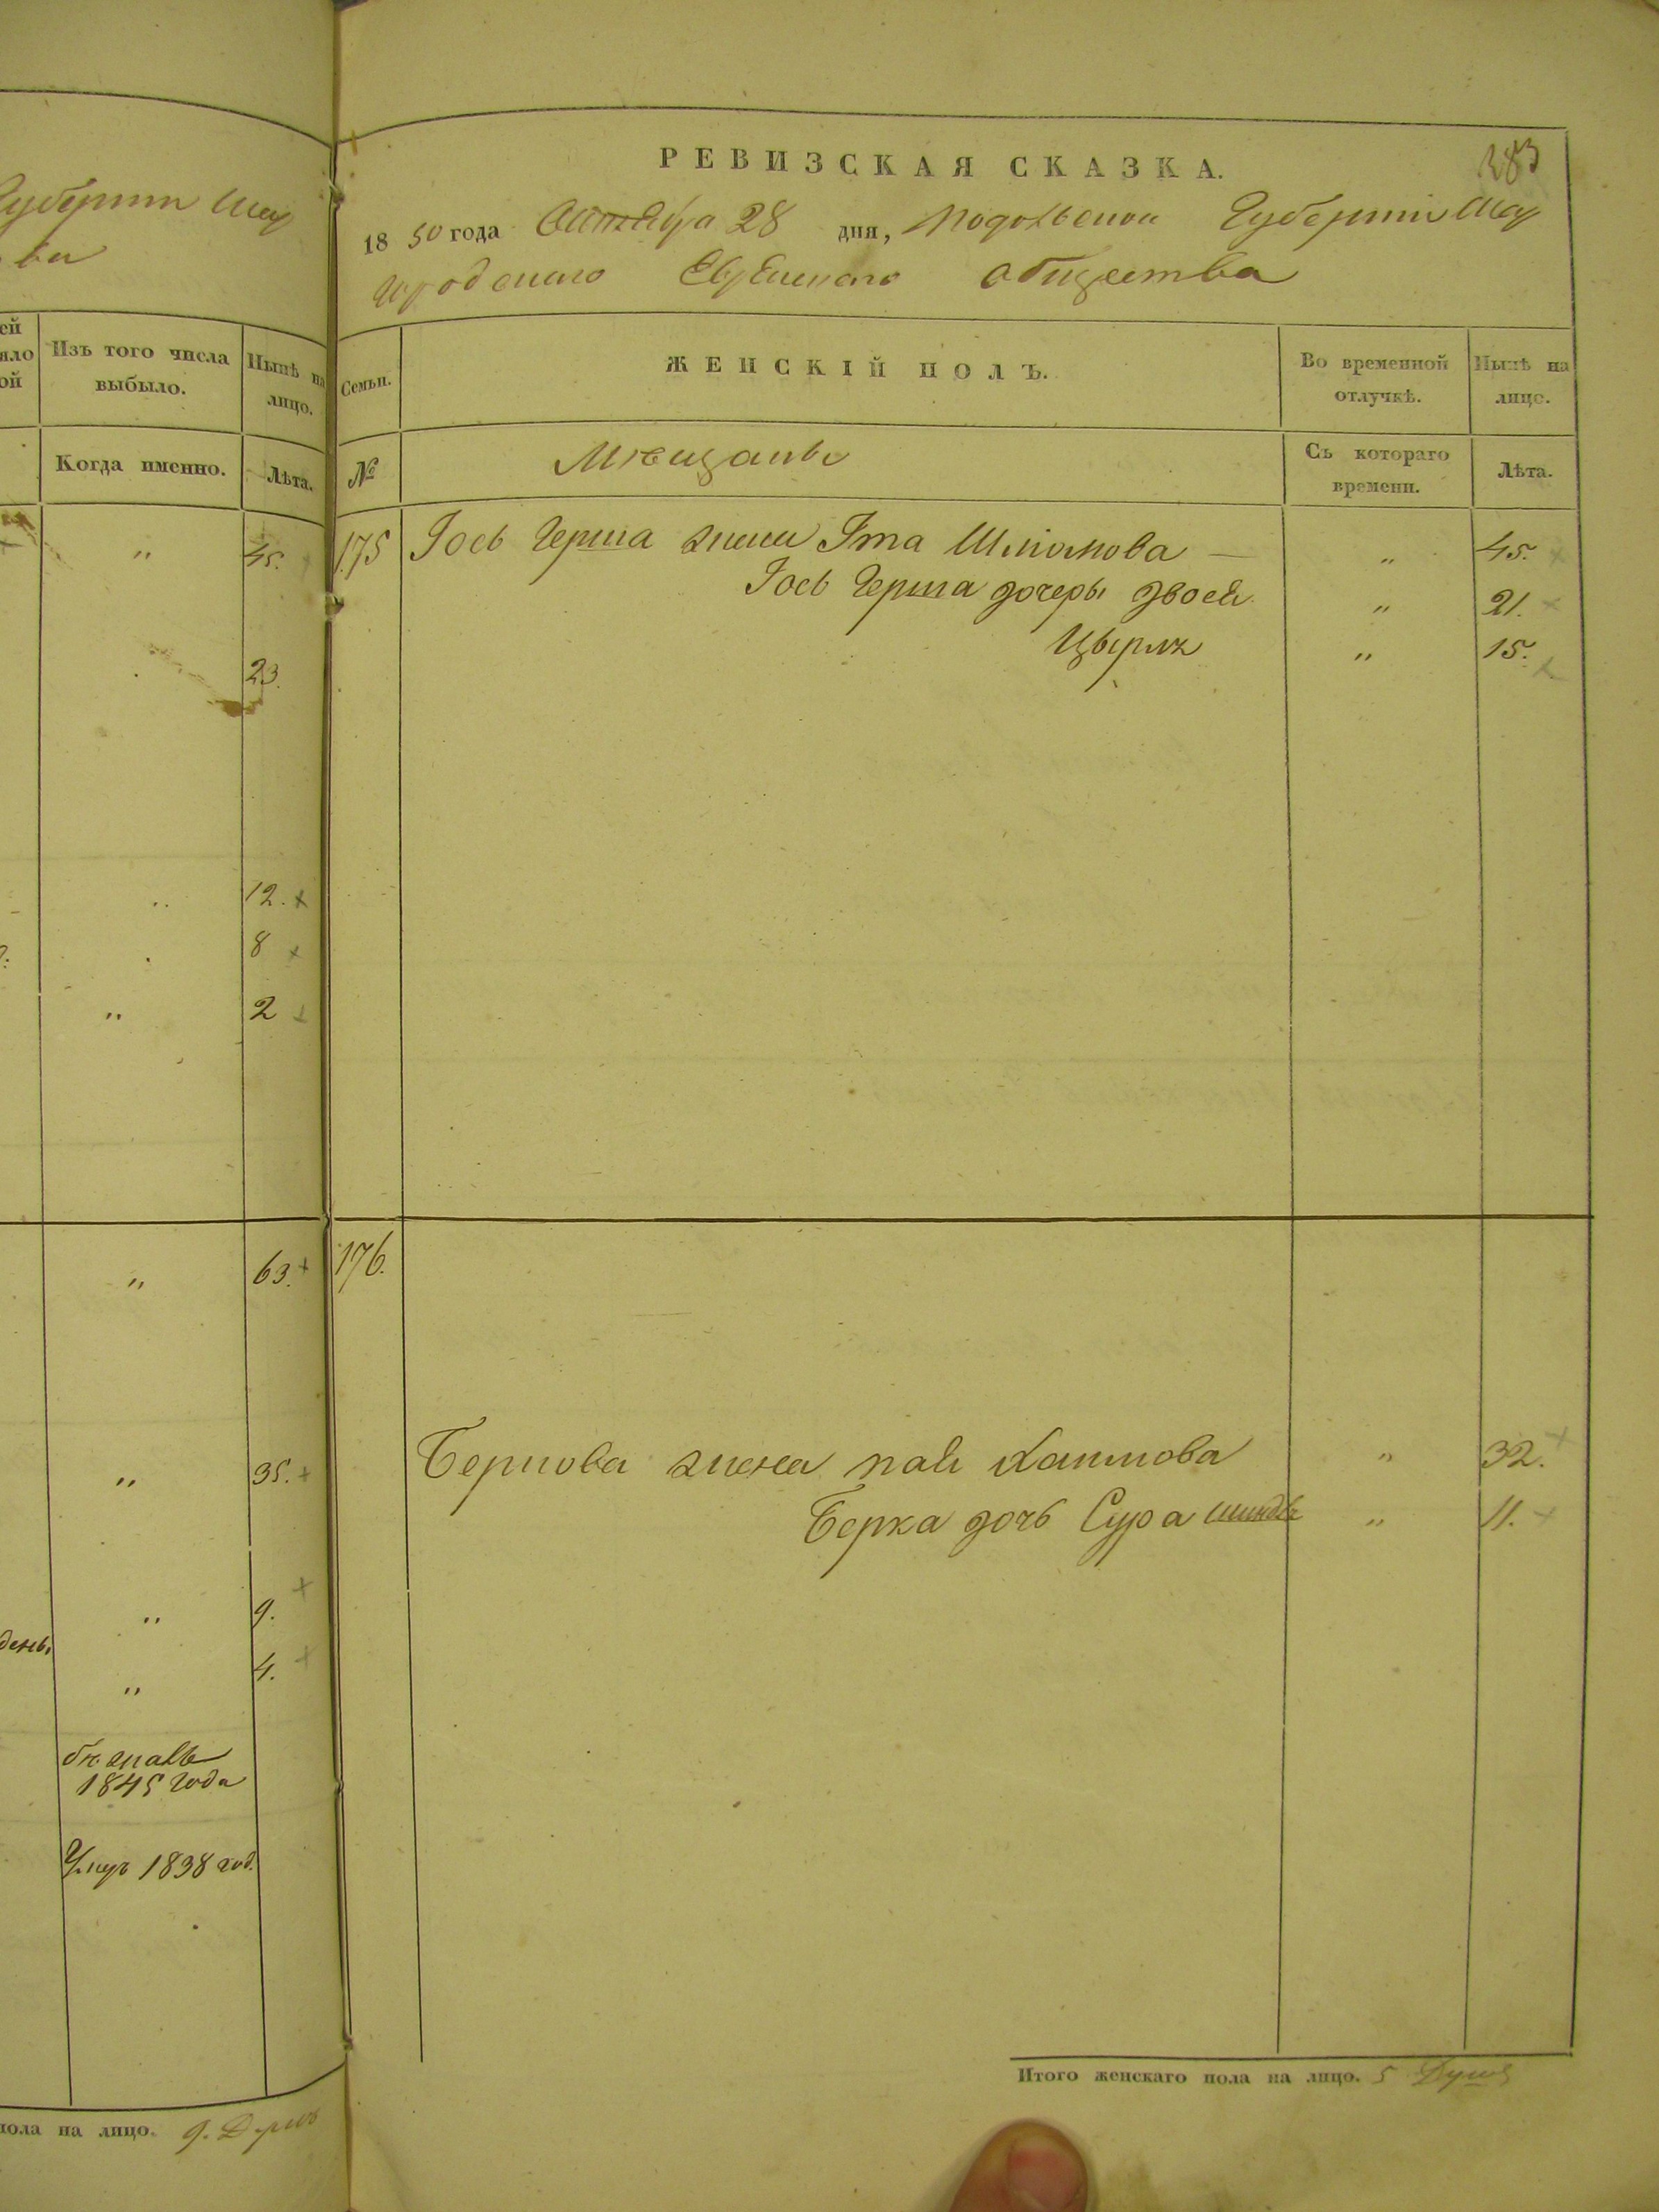 Губерніи Шар
ва
ей
яло
ой
Изъ того числа
выбыло.
Нынѣ на
лицо.
Когда именно.
Лѣта.
„ 45.
23.
12.
8
„ 2
„ 63.
„ 35.
„ 9.
день
„ 4.
бѣжалъ
1845 года
Умръ 1838 год.
пола на лицо. 9. Душъ
383
РЕВИЗСКАЯ СКАЗКА.
1850 года Октября 28 дня, Подольской Губерніи Шар
городского Еврейского общества
Семьи.
ЖЕНСКІЙ ПОЛЪ.
Во временной
отлучкѣ.
Нынѣ на
лицо.
№
Мѣщанъ
Съ котораго
времени.
Лѣта.
175 Іось Герша жена Ита Шліомова — „ 45.
Іось Герша дочеры Двоси „ 21.
Цырля „ 15.
176.
Беркова жена Хаимова „ 32.
Берка дочь Сура „ 11.
Итого женскаго пола на лицо. 5 Душъ